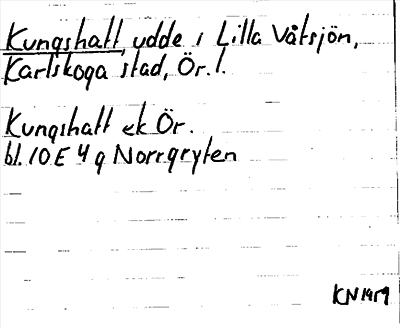 Kungshatt, udde i Lilla Våtsjön,
Karlskoga stad, Ör. l.
Kungshatt ek Ör.
bl. 10 E 4 g Norrgryten